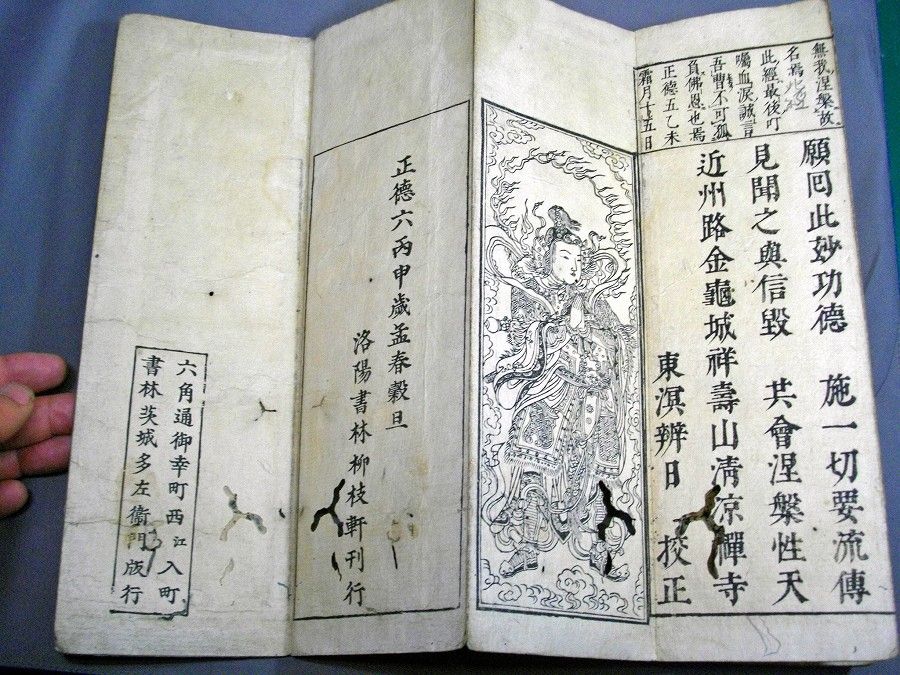 無我涅槃故
名焉
此經最後叮
嘱血淚誠言
吾曹不可孤
負佛恩也焉
正德五乙未
霜月十五日
願囘此妙功德 施一切要流傳
見聞之與信毀 共會涅槃性天
近州路金龜城祥壽山淸凉禪寺
東溟辨日 挍正
正德六丙申歲孟春穀旦
洛陽書林柳枝軒刊行
六角通御幸町西江入町
書林茨城多左衞門版行